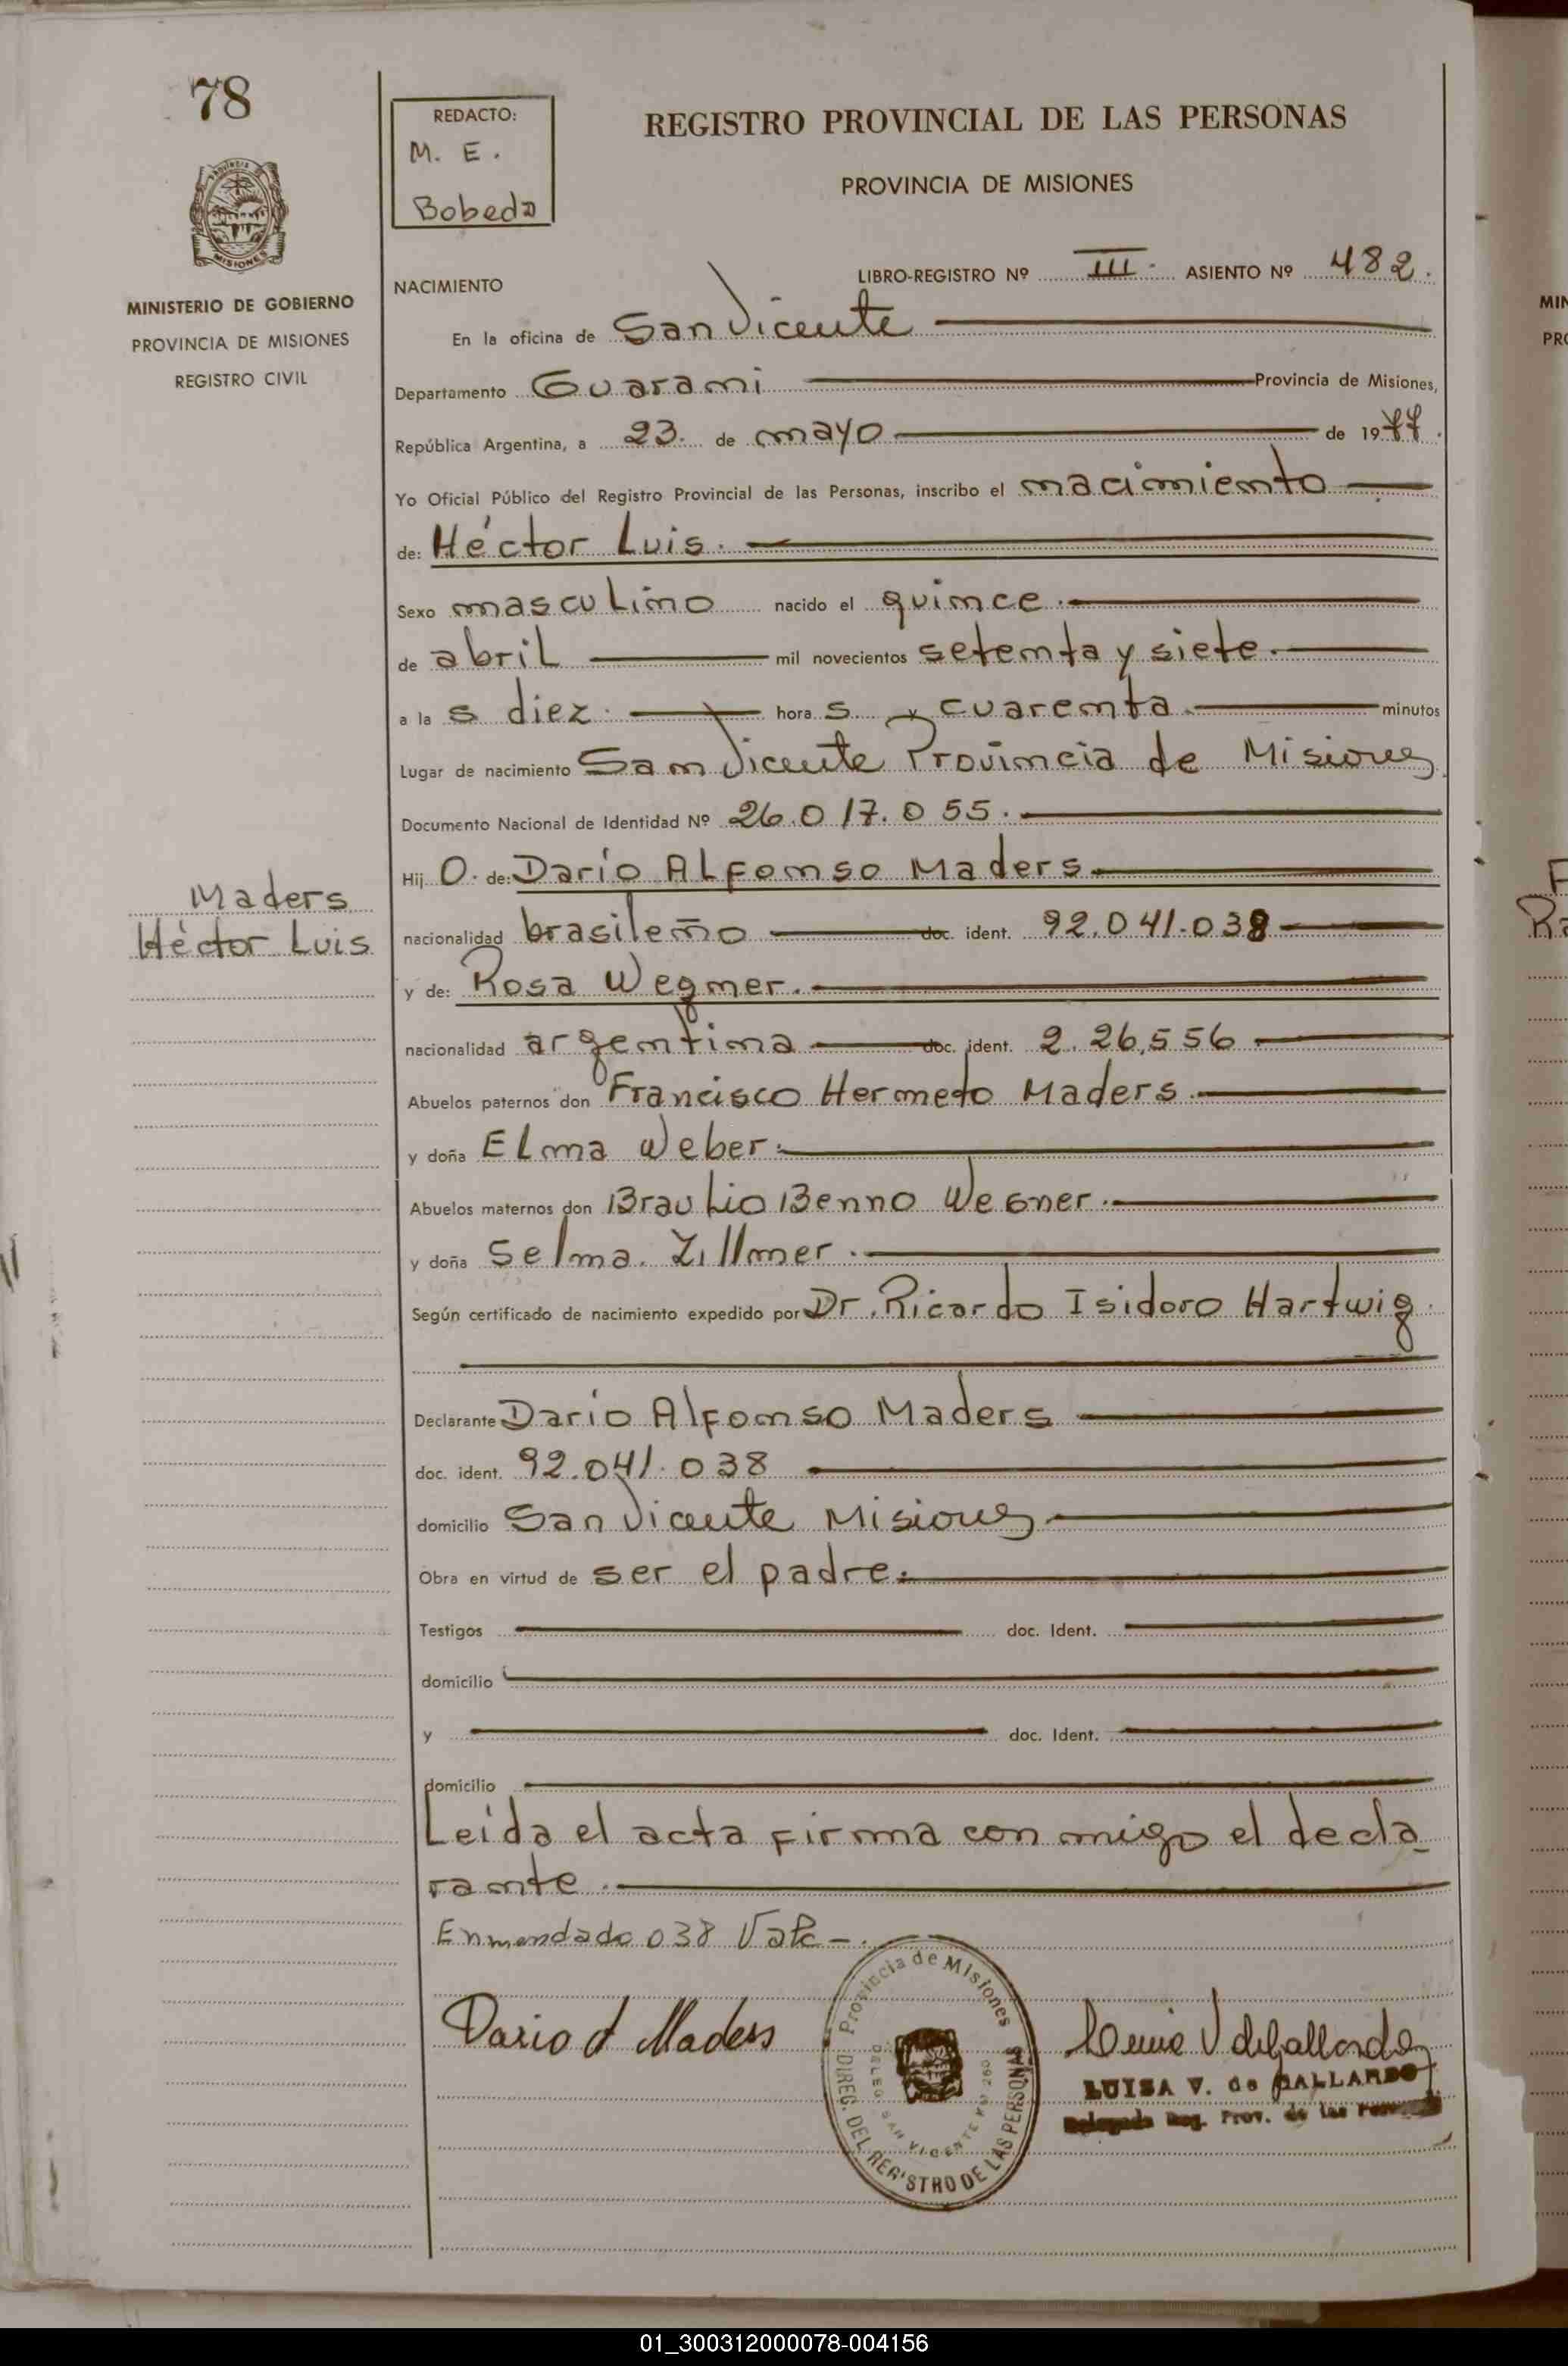 78
REDACTO:
M. E.
Bobeda
REGISTRO PROVINCIAL DE LAS PERSONAS
PROVINCIA DE MISIONES
MISIONES
MINISTERIO DE GOBIERNO
PROVINCIA DE MISIONES
REGISTRO CIVIL
LIBRO-REGISTRO Nº III. ASIENTO Nº 482.
NACIMIENTO
En la oficina de San Vicente
Departamento Guarani Provincia de Misiones,
República Argentina, a 23. de mayo de 1977.
Yo Oficial Público del Registro Provincial de las Personas, inscribo el nacimiento
de: Héctor Luis.
Sexo masculino nacido el quince.
de abril mil novecientos setenta y siete.
a la s diez. hora s y cuarenta. minutos
Lugar de nacimiento San Vicente Provincia de Misiones
Documento Nacional de Identidad Nº 26.017.055.
Hij o. de: Darío Alfonso Maders
Maders
Héctor Luis
nacionalidad brasileño doc. ident. 92.041.038
y de: Rosa Wegner.
nacionalidad argentina doc. ident. 2.26,556
Abuelos paternos don Francisco Hermeto Maders.
y doña Elma Weber.
Abuelos maternos don Braulio Benno Wegner.
y doña Selma. Zillmer.
Según certificado de nacimiento expedido por Dr. Ricardo Isidoro Hartwig.
Declarante Darío Alfonso Maders
doc. ident. 92.041.038
domicilio San Vicente Misiones
Obra en virtud de ser el padre.
Testigos doc. Ident.
domicilio
y doc. Ident.
domicilio
Leída el acta firma con migo el decla
rante.
Enmendado 038 Vale-.
Provincia de Misiones
DIREC. DEL REGISTRO DE LAS PERSONAS
SAN VICENTE
Dario A Maders
V de Gallardo
LUISA V. de GALLARDO
Delegada Reg. Prov. de las Personas
01_300312000078-004156